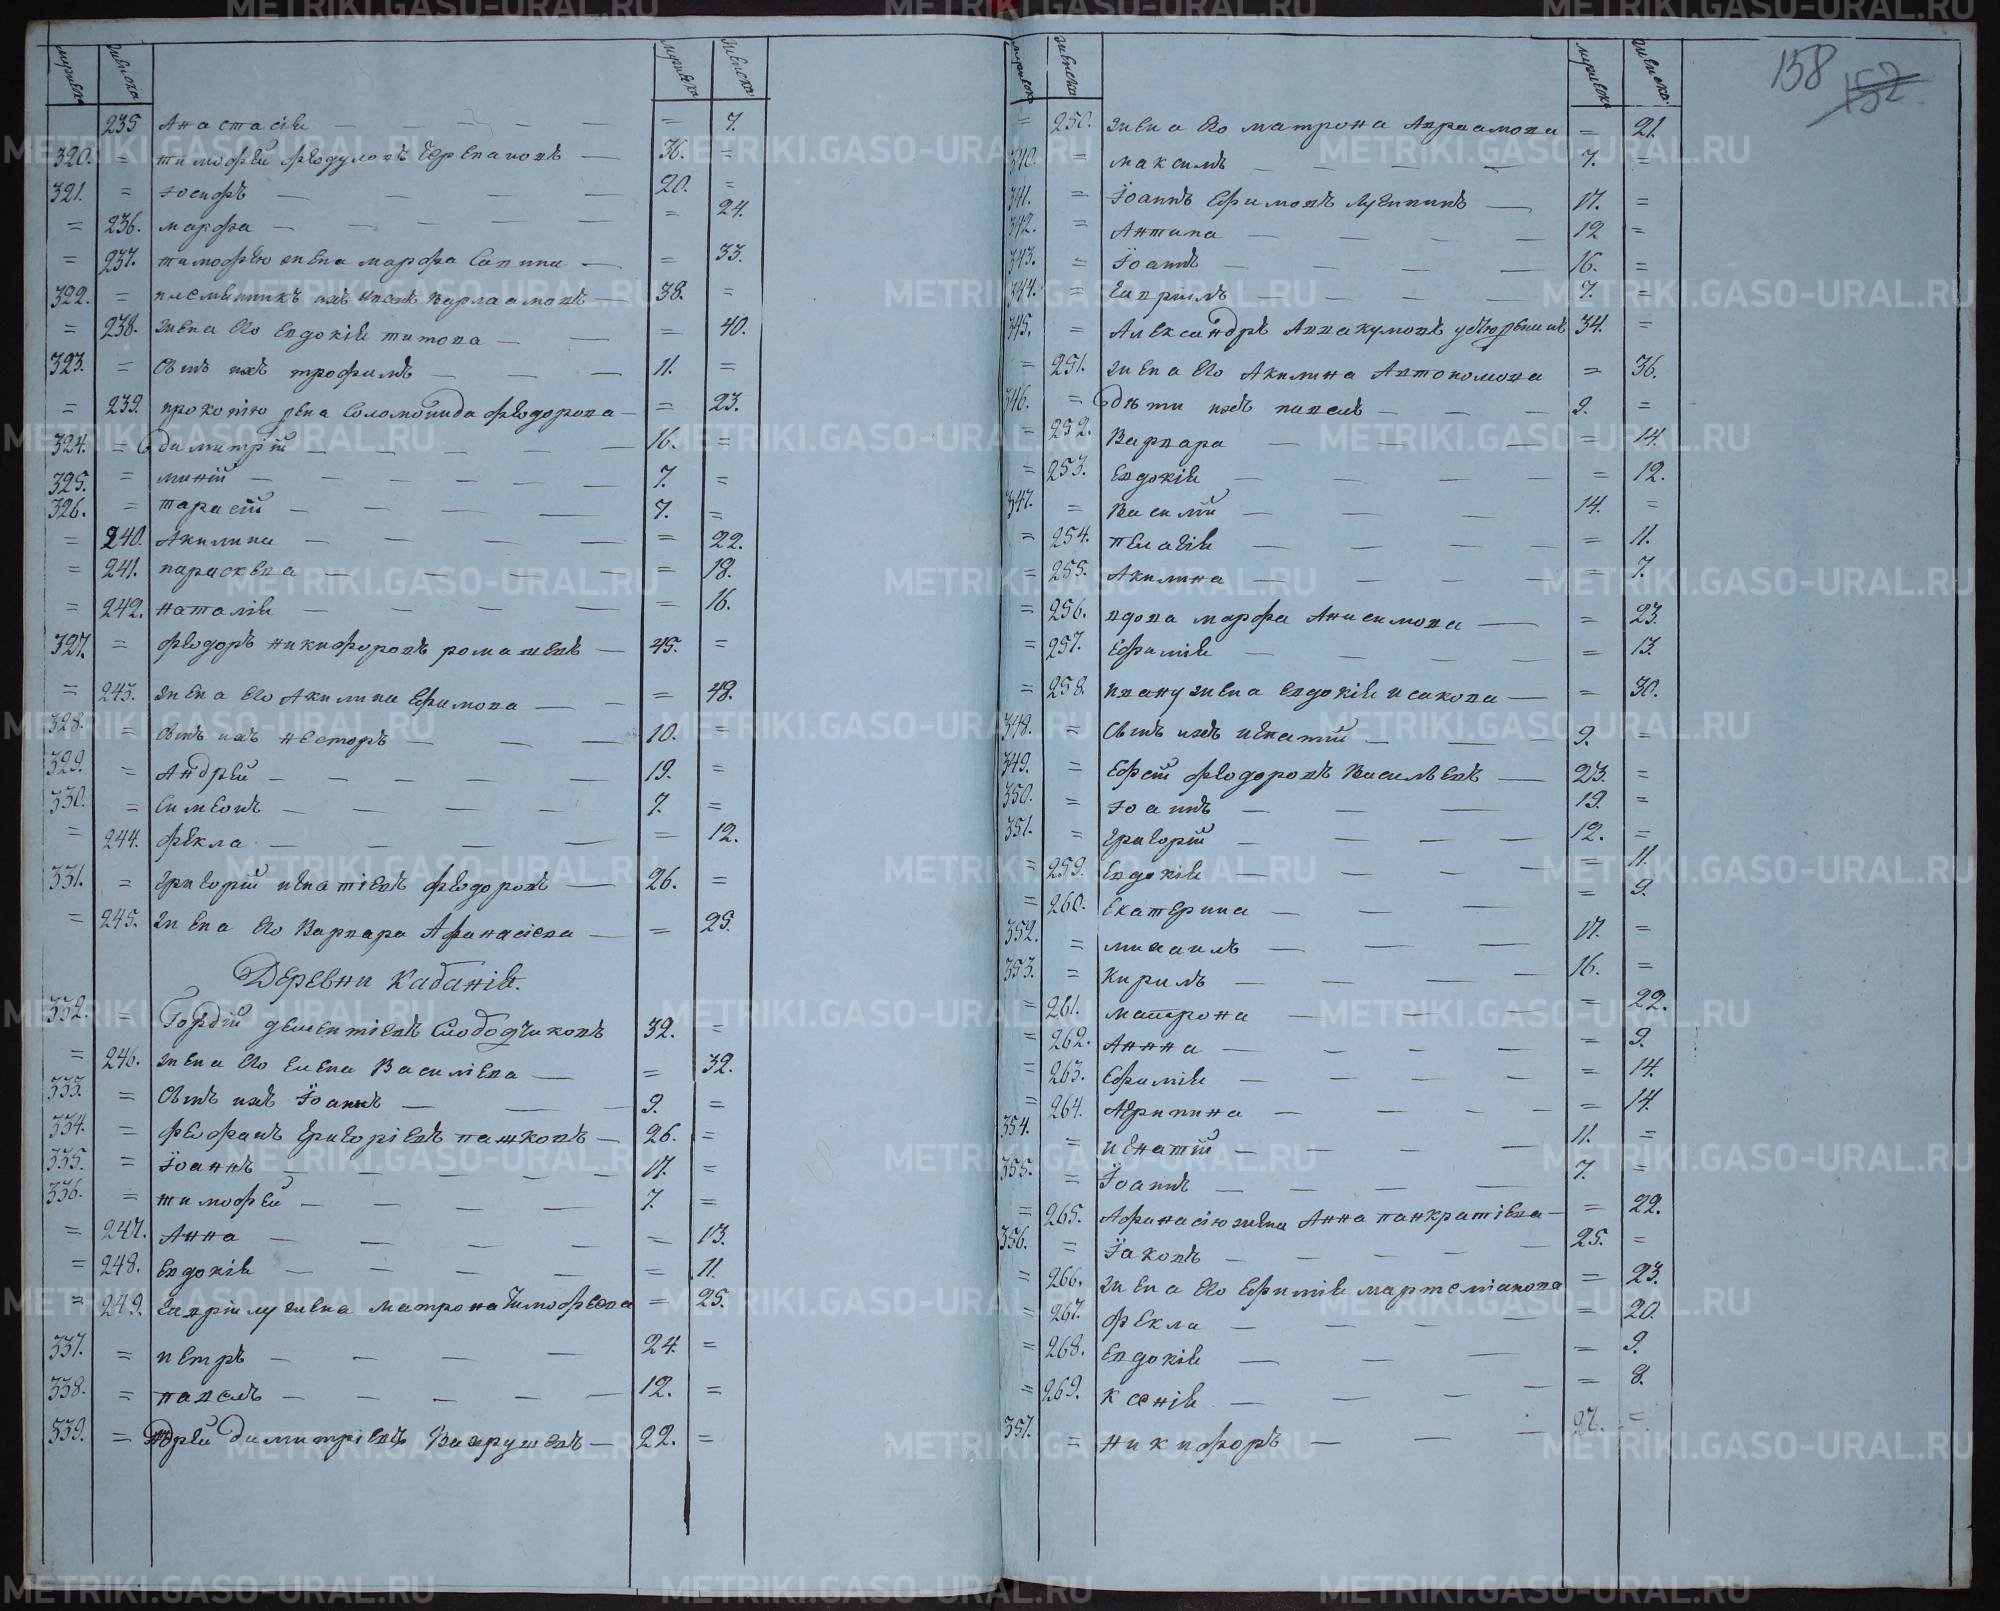 мужеска женска мужеска женска
235 Анастасія — 7.
320. = тимофей феодуловъ Черепановъ — 36. =
321. = Іосифъ — 20. =
= 236. марфа — = 24.
= 237. тимофѣю жена марфа Савина — = 33.
322. = племянникъ ихъ Иванъ Варлаамовъ — 38. =
= 238. жена его Евдокія титова — = 40.
323. = Сынъ ихъ трофимъ — 11. =
= 239. прокопію жена Соломонида феодорова — = 23.
324. = димитрій — 16. =
325. = миній — 7. =
326. = тарасій — 7. =
= 240. Акилина — = 22.
= 241. параскева — = 18.
= 242. наталія — = 16.
327. = феодоръ никифоровъ ромашевъ — 45. =
= 243. жена его Акилина Ефимова — = 48.
328. = Сынъ ихъ несторъ — 10. =
329. = Андрей — 19. =
330. = Симеонъ — 7. =
= 244. фекла — = 12.
331. = григорій игнатіевъ феодоровъ — 26. =
= 245. жена его Варвара Афанасіева — = 25.
Деревни Кабанія.
332. = Гордій дементіевъ Слободчиковъ 32. =
= 246. жена его Елена Василіева — = 32.
333. = Сынъ ихъ Іоаннъ — 9. =
334. = феофанъ григоріевъ пашковъ — 26. =
335. = Іоаннъ — 17. =
336. = тимофей — 7. =
= 247. Анна — = 13.
= 248. Евдокія — = 11.
= 249. гавріилу жена матрона тимофеева = 25.
337. = петръ — 24. =
338. = павелъ — 12. =
339. = Андрей димитріевъ Вахрушевъ — 22. =
158
152
мужеска женска мужеска женска
= 250. жена его матрона Авраамова = 21.
340. = максимъ — 7. =
341. = Іоаннъ Ефимовъ лучининъ — 17. =
342. = Антипа — 12 =
343. = Іоаннъ — 16. =
344. = гавріилъ — 7. =
345. = Александръ Аввакумовъ 34. =
= 251. жена его Акилина Автономова = 36.
346. = дѣти ихъ павелъ — 9. =
= 252. Варвара — = 14.
= 253. Евдокія — = 12.
347. = Василій — 14. =
= 254. пелагія — = 11.
= 255. Акилина — = 7.
= 256. вдова марфа Анисимова — = 23.
= 257. Ефимія — = 13.
= 258. ивану жена Евдокія исакова — = 30.
348. = Сынъ ихъ игнатій — 9. =
349. = Ефсій феодоровъ Васильевъ — 23. =
350. = Іоаннъ — 19. =
351. = григорій — 12. =
= 259. Евдокія — = 11.
= 260. Екатерина — = 9.
352. = михаилъ — 17. =
353. = Кирилъ — 16. =
= 261. матрона — = 22.
= 262. Анна — = 9.
= 263. Ефимія — = 14.
= 264. Агрипина — = 14.
354. = игнатій — 11. =
355. = Іоаннъ — 7. =
= 265. Афанасію жена Анна панкратіева — = 22.
356. = Іаковъ — 25. =
= 266. жена его Ефимія мартеміанова = 23.
= 267. фекла — = 20.
= 268. Евдокія — = 9.
= 269. ксенія — = 8.
357. = никифоръ — 27. =